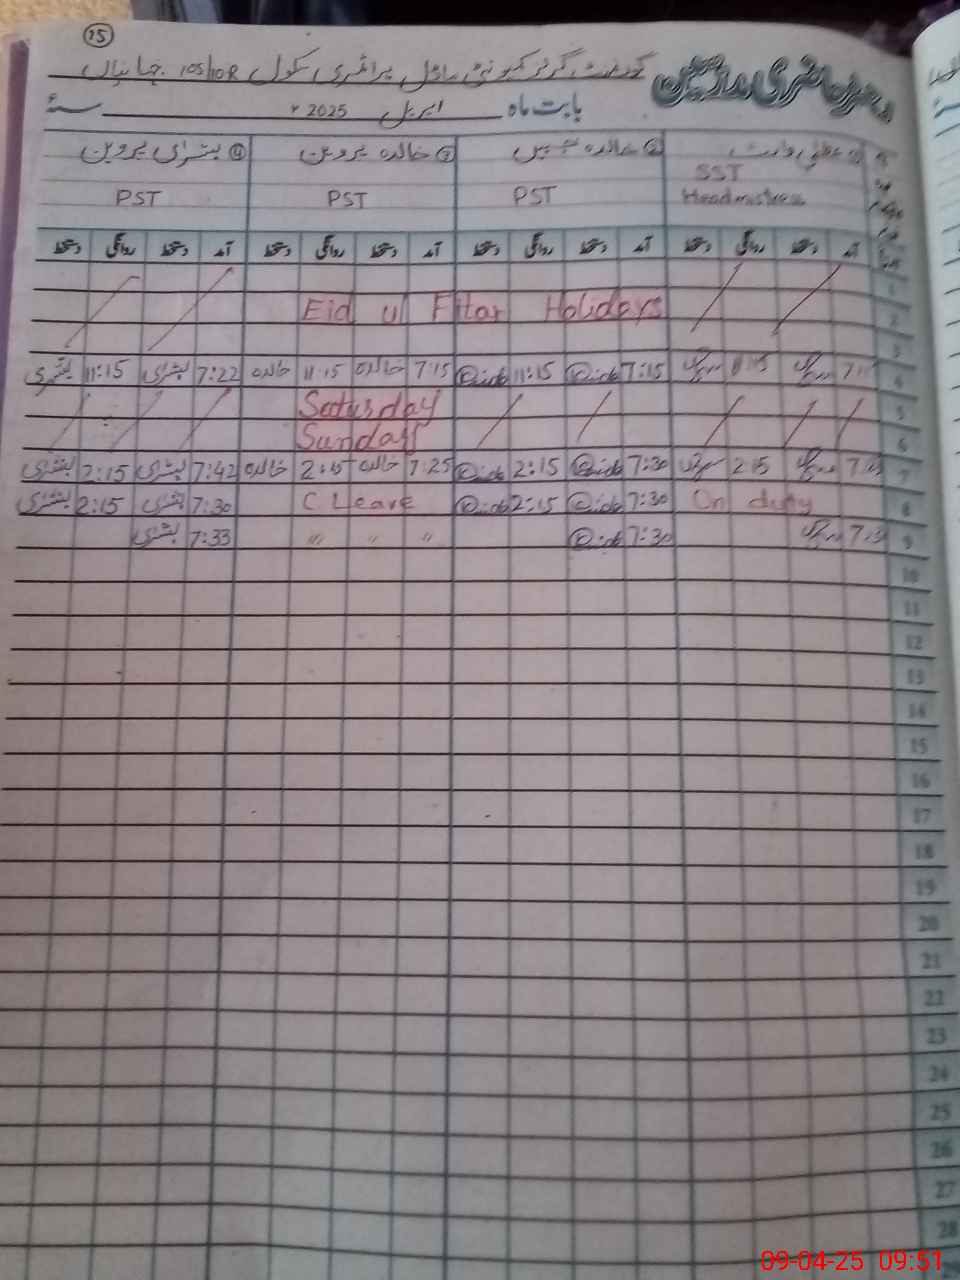 15
رجسٹر حاضری مدرسین
گورنمنٹ گرلز کمیونٹی ماڈل پرائمری سکول 105/10R جہانیاں
بابت ماہ اپریل 2025ء سنہ
خالدہ ③ خالدہ پروین ④ بشریٰ پروین
SST
Headmistress PST PST PST
آمد دستخط روانگی دستخط آمد دستخط روانگی دستخط آمد دستخط روانگی دستخط آمد دستخط روانگی دستخط
1
2 Eid ul Fitar Holidays
3
4 11:15 7:15 11:15 7:15 خالدہ 11:15 خالدہ 7:22 بشریٰ 11:15 بشریٰ
5 Saturday
6 Sunday
7 2:15 7:30 2:15 7:25 خالدہ 2:15 خالدہ 7:42 بشریٰ 2:15 بشریٰ
8 On duty 7:30 2:15 C Leave 7:30 بشریٰ 2:15 بشریٰ
9 7:30 〃 〃 〃 7:33 بشریٰ
10
11
12
13
14
15
16
17
18
19
20
21
22
23
24
25
26
27
28
09-04-25 09:51